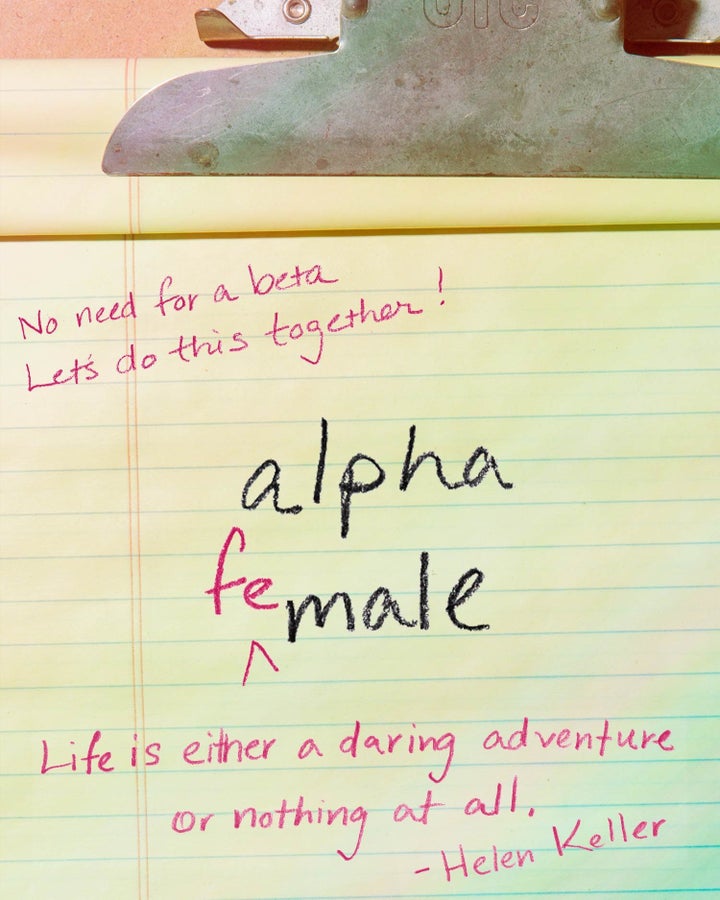 UTC
No need for a beta
Let's do this together!
alpha
fe^male
Life is either a daring adventure
or nothing at all.
-Helen Keller